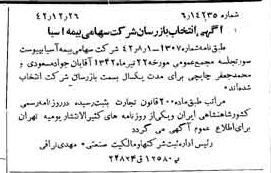 شماره ۶٫۱۴۲۳۵ ۴۲٫۱۲٫۲۶
آگهی انتخاب بازرسان شرکت سهامی بیمه آسیا
طبق نامه شماره ۱۳۰۷-۴۲٫۸٫۱ شرکت سهامی بیمه آسیا بپیوست
صورتجلسه مجمع عمومی مورخه ۲۲ تیرماه ۱۳۴۲ آقایان جواد مسعودی و
محمدجعفر چایچی برای مدت یکسال بسمت بازرسان شرکت انتخاب
شده‌اند
مراتب طبق ماده ۲۰۰ قانون تجارت بثبت رسیده در روزنامه رسمی
کشور شاهنشاهی ایران و یکی از روزنامه های کثیرالانتشار یومیه تهران
برای اطلاع عموم آگهی می گردد
رئیس اداره ثبت شرکتها و مالکیت صنعتی - مهدی نراقی